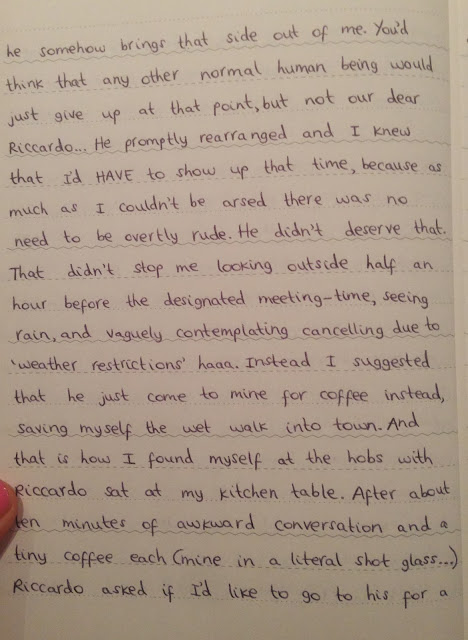 he somehow brings that side out of me. You'd
think that any other normal human being would
just give up at that point, but not our dear
Riccardo... He promptly rearranged and I knew
that I'd HAVE to show up that time, because as
much as I couldn't be arsed there was no
need to be overtly rude. He didn't deserve that.
That didn't stop me looking outside half an
hour before the designated meeting-time, seeing
rain, and vaguely contemplating cancelling due to
'weather restrictions' haaa. Instead I suggested
that he just come to mine for coffee instead,
saving myself the wet walk into town. And
that is how I found myself at the hobs with
Riccardo sat at my kitchen table. After about
ten minutes of awkward conversation and a
tiny coffee each (mine in a literal shot glass...)
Riccardo asked if I'd like to go to his for a